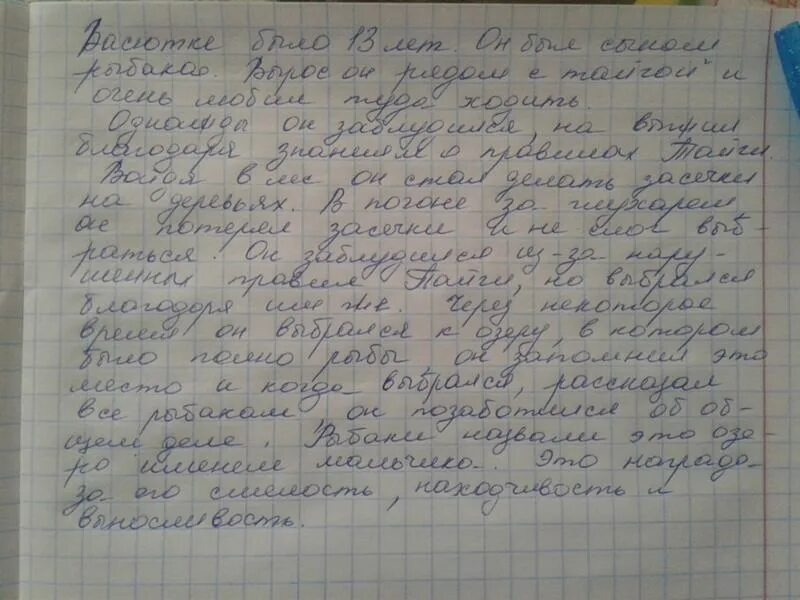 Васютке было 13 лет. Он был сыном
рыбака. Вырос он рядом с тайгой и
очень любил туда ходить.
Однажды он заблудился, на выжил
благодаря знаниям о правилах Тайги.
Войдя в лес он стал делать засечки
на деревьях. В погоне за глухарем
он потерял засечки и не смог выб-
раться. Он заблудился из-за нару-
шенных правил Тайги, но выбрался
благодоря им же. Через некоторое
время он выбрался к озеру, в котором
было полно рыбы он запомнил это
место и когда выбрался, рассказал
все рыбакам он позаботился об об-
щем деле. Рыбаки назвали это озе-
ро именем мальчика. Это награда
за его смелость, находчивость и
выносливость.